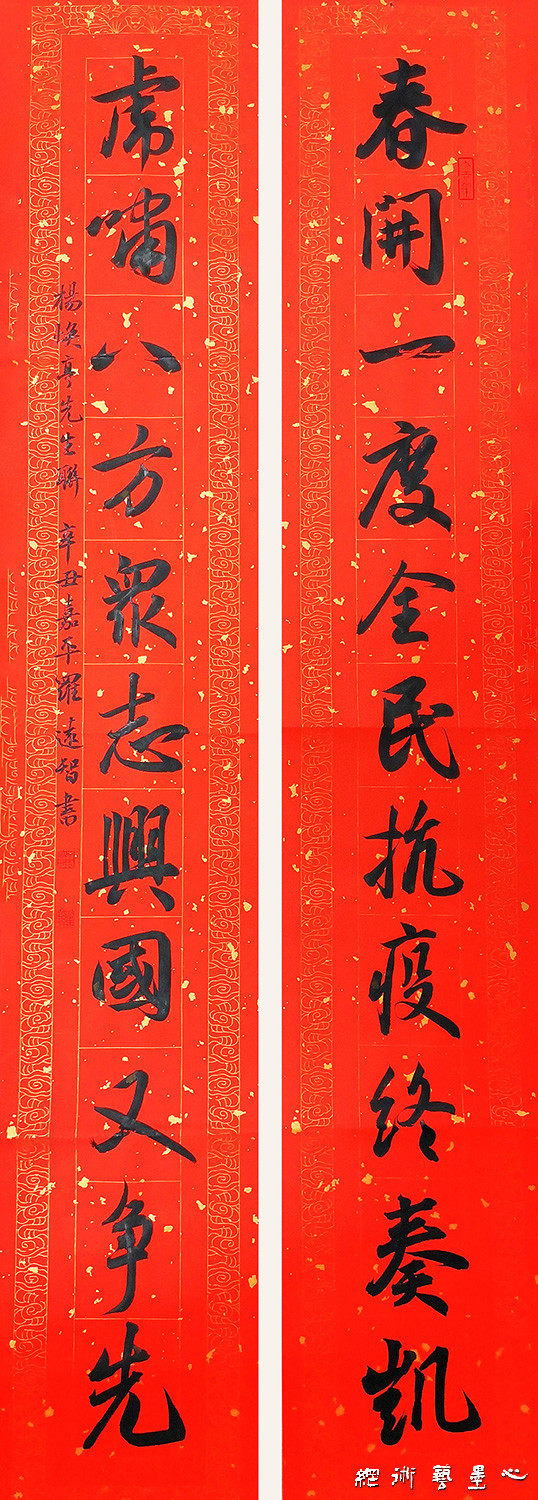 春開一度全民抗疫終奏凱
虎嘯八方眾志興國又争先
楊煥亭先生聯 辛丑嘉平羅遠智書
心墨藝术網